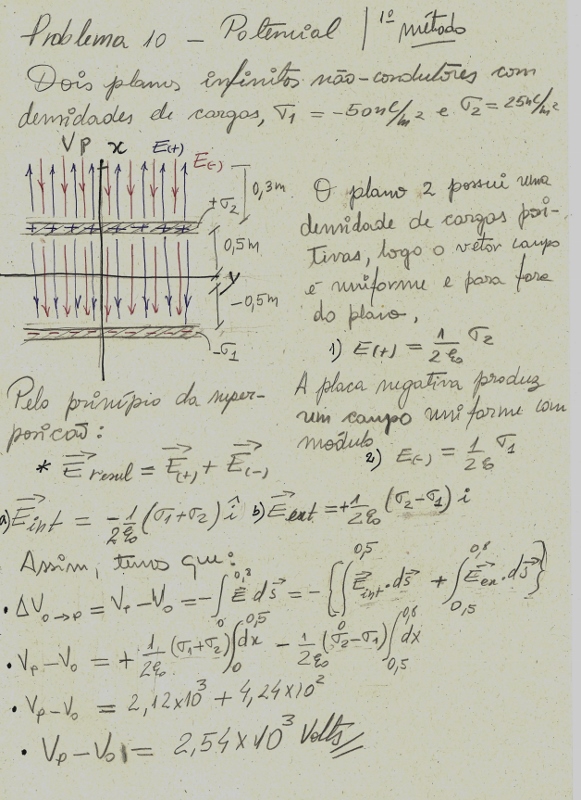 Problema 10 - Potencial | 1º método
Dois planos infinitos não-condutores com
densidades de cargas, σ1 = -50nC/m² e σ2 = 25nC/m²
VP x E(+) E(-)
0,3m
+σ2
0,5m
y
-0,5m
-σ1
O plano 2 possui uma
densidade de cargas posi-
tivas, logo o vetor campo
é uniforme e para fora
do plano,
1) E(+) = 1/2ε0 σ2
A placa negativa produz
um campo uniforme com
módulo
2) E(-) = 1/2ε0 σ1
Pelo princípio da super-
posição:
* E⃗resul = E⃗(+) + E⃗(-)
a) E⃗int = -1/2ε0 (σ1+σ2) î b) E⃗ext = +1/2ε0 (σ2-σ1) i
Assim, temos que:
• ΔV0→P = VP - V0 = -∫0^0,8 E⃗ ds⃗ = -{∫0^0,5 E⃗int · ds⃗ + ∫0,5^0,8 E⃗ex · ds⃗}
• VP - V0 = +1/2ε0 (σ1+σ2) ∫0^0,5 dx - 1/2ε0 (σ2-σ1) ∫0,5^0,8 dx
• VP - V0 = 2,12x10³ + 4,24x10²
• VP - V0 = 2,54x10³ Volts